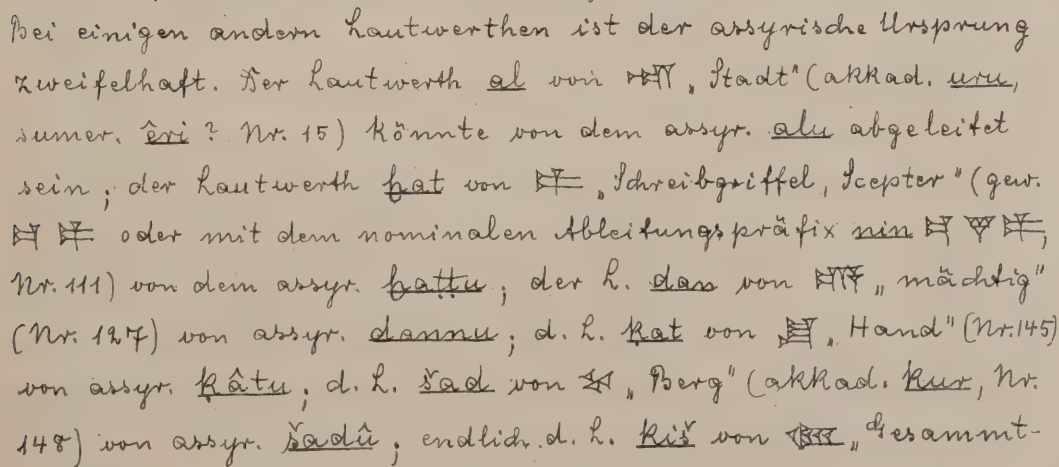 Bei einigen andern Lautwerthen ist der assyrische Ursprung
zweifelhaft. Der Lautwerth al von 𒌷 „Stadt" (akkad. uru,
sumer. êri ? Nr. 15) könnte von dem assyr. alu abgeleitet
sein; der Lautwerth ḫat von 𒉺 „Schreibgriffel, Scepter" (gew.
𒄑 𒉺 oder mit dem nominalen Ableitungspräfix nin 𒄑 𒐼 𒉺,
Nr. 111) von dem assyr. ḫaṭṭu; der L. dan von 𒆗 „mächtig"
(Nr. 127) von assyr. dannu; d. L. ḳat von 𒋗 „Hand" (Nr. 145)
von assyr. ḳâtu; d. L. šad von 𒆳 „Berg" (akkad. kur, Nr.
148) von assyr. šadû; endlich d. L. kiš von 𒆧 „Gesammt-